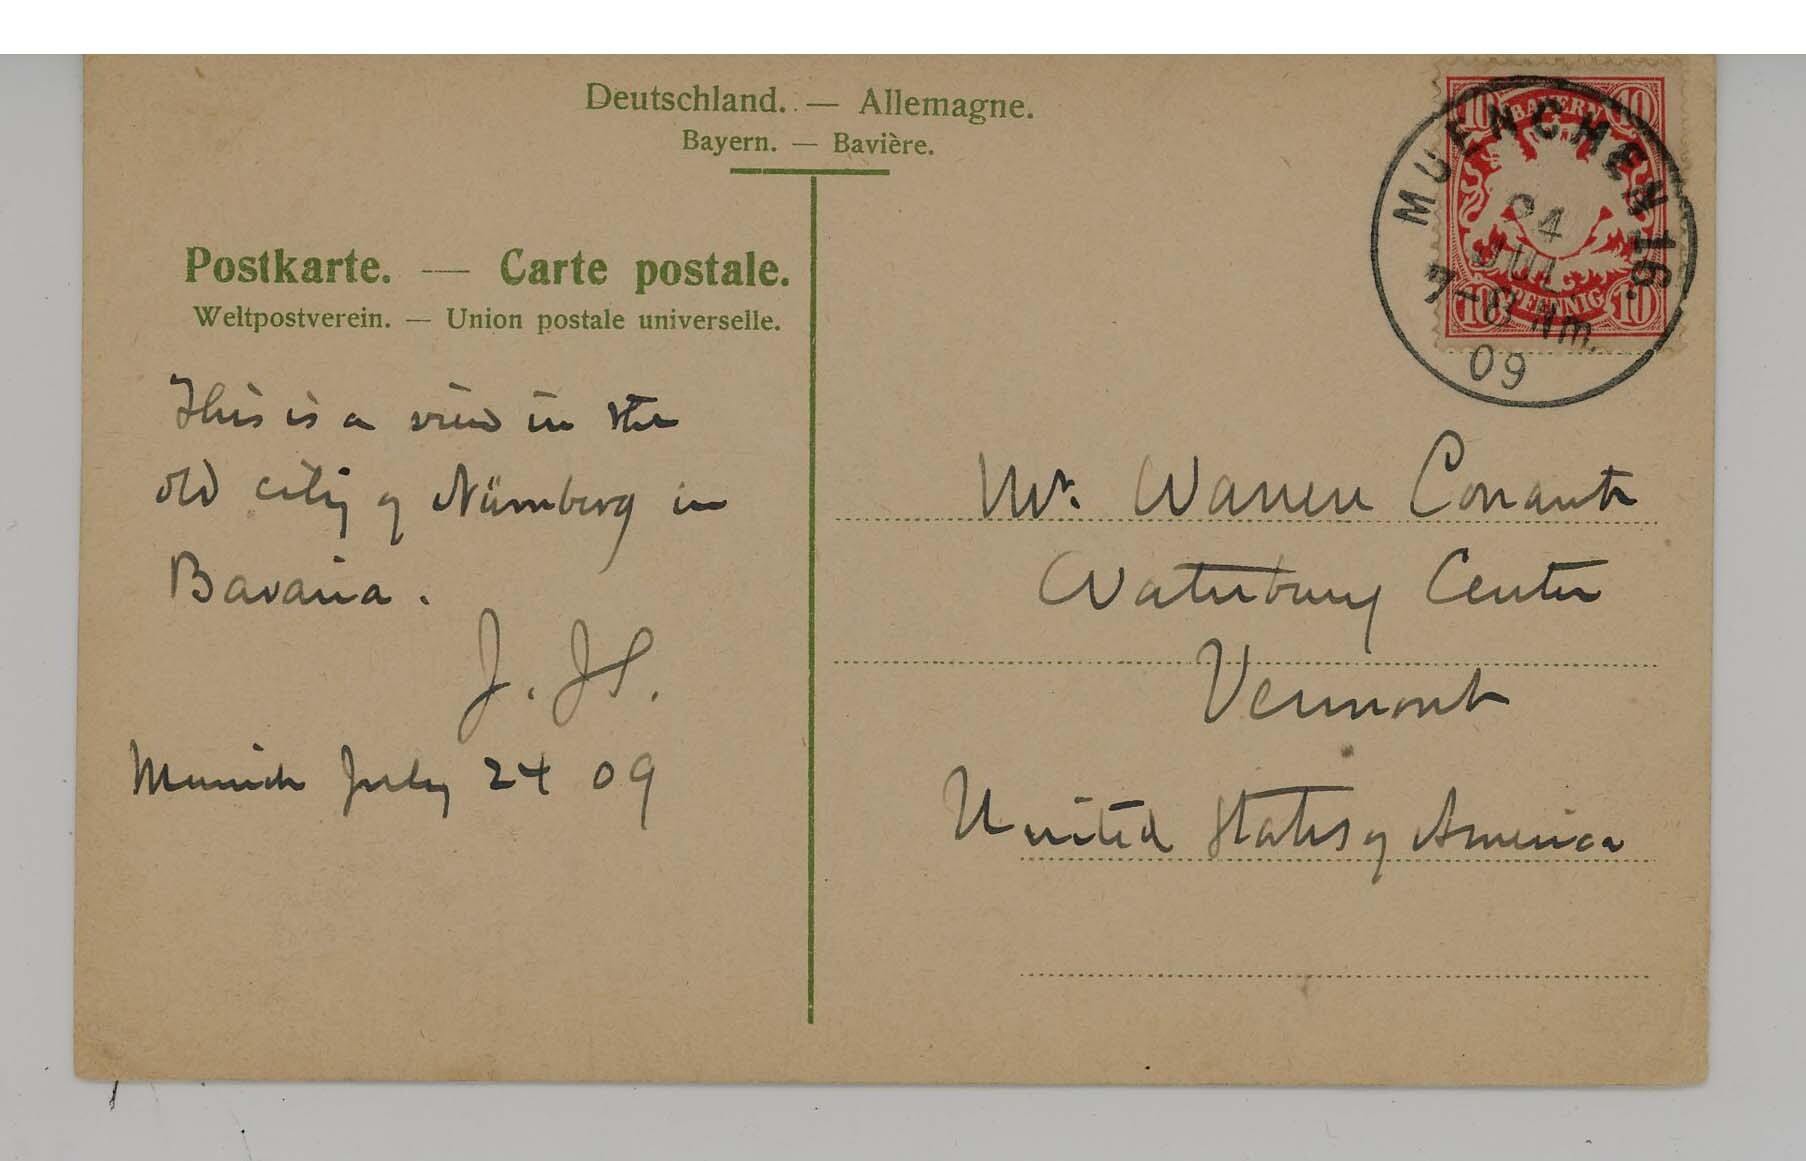 Deutschland. — Allemagne.
Bayern. — Bavière.
Postkarte. — Carte postale.
Weltpostverein. — Union postale universelle.
BAYERN
10 10
PFENNIG
10 10
MUENCHEN 16.
24
JUL
7-8 Nm.
09
This is a view in the
old city of Nürnberg in
Bavaria.
J. JS.
Munich July 24 09
Mr. Warren Conant
Waterbury Center
Vermont
United States of America